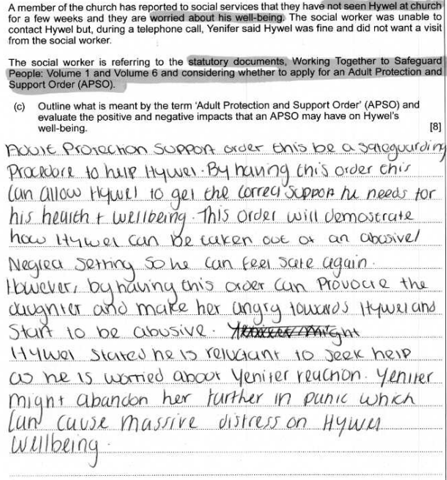 A member of the church has reported to social services that they have not seen Hywel at church
for a few weeks and they are worried about his well-being. The social worker was unable to
contact Hywel but, during a telephone call, Yenifer said Hywel was fine and did not want a visit
from the social worker.
The social worker is referring to the statutory documents, Working Together to Safeguard
People: Volume 1 and Volume 6 and considering whether to apply for an Adult Protection and
Support Order (APSO).
(c) Outline what is meant by the term 'Adult Protection and Support Order' (APSO) and
evaluate the positive and negative impacts that an APSO may have on Hywel's
well-being. [8]
Adult Protection Support order this be a safeguarding
Procedure to help Hywel. By having this order this
can allow Hywel to get the correct support he needs for
his health + wellbeing. This order will demostrate
how Hywel can be taken out of an abusive/
Neglect setting so he can feel safe again.
However, by having this order can Provocie the
daughter and make her angry towards Hywel and
start to be abusive.
Hywel stated he is reluctant to seek help
as he is worried about Yenifer reaction. Yenifer
might abandon her further in panic which
can cause massive distress on Hywel
wellbeing.